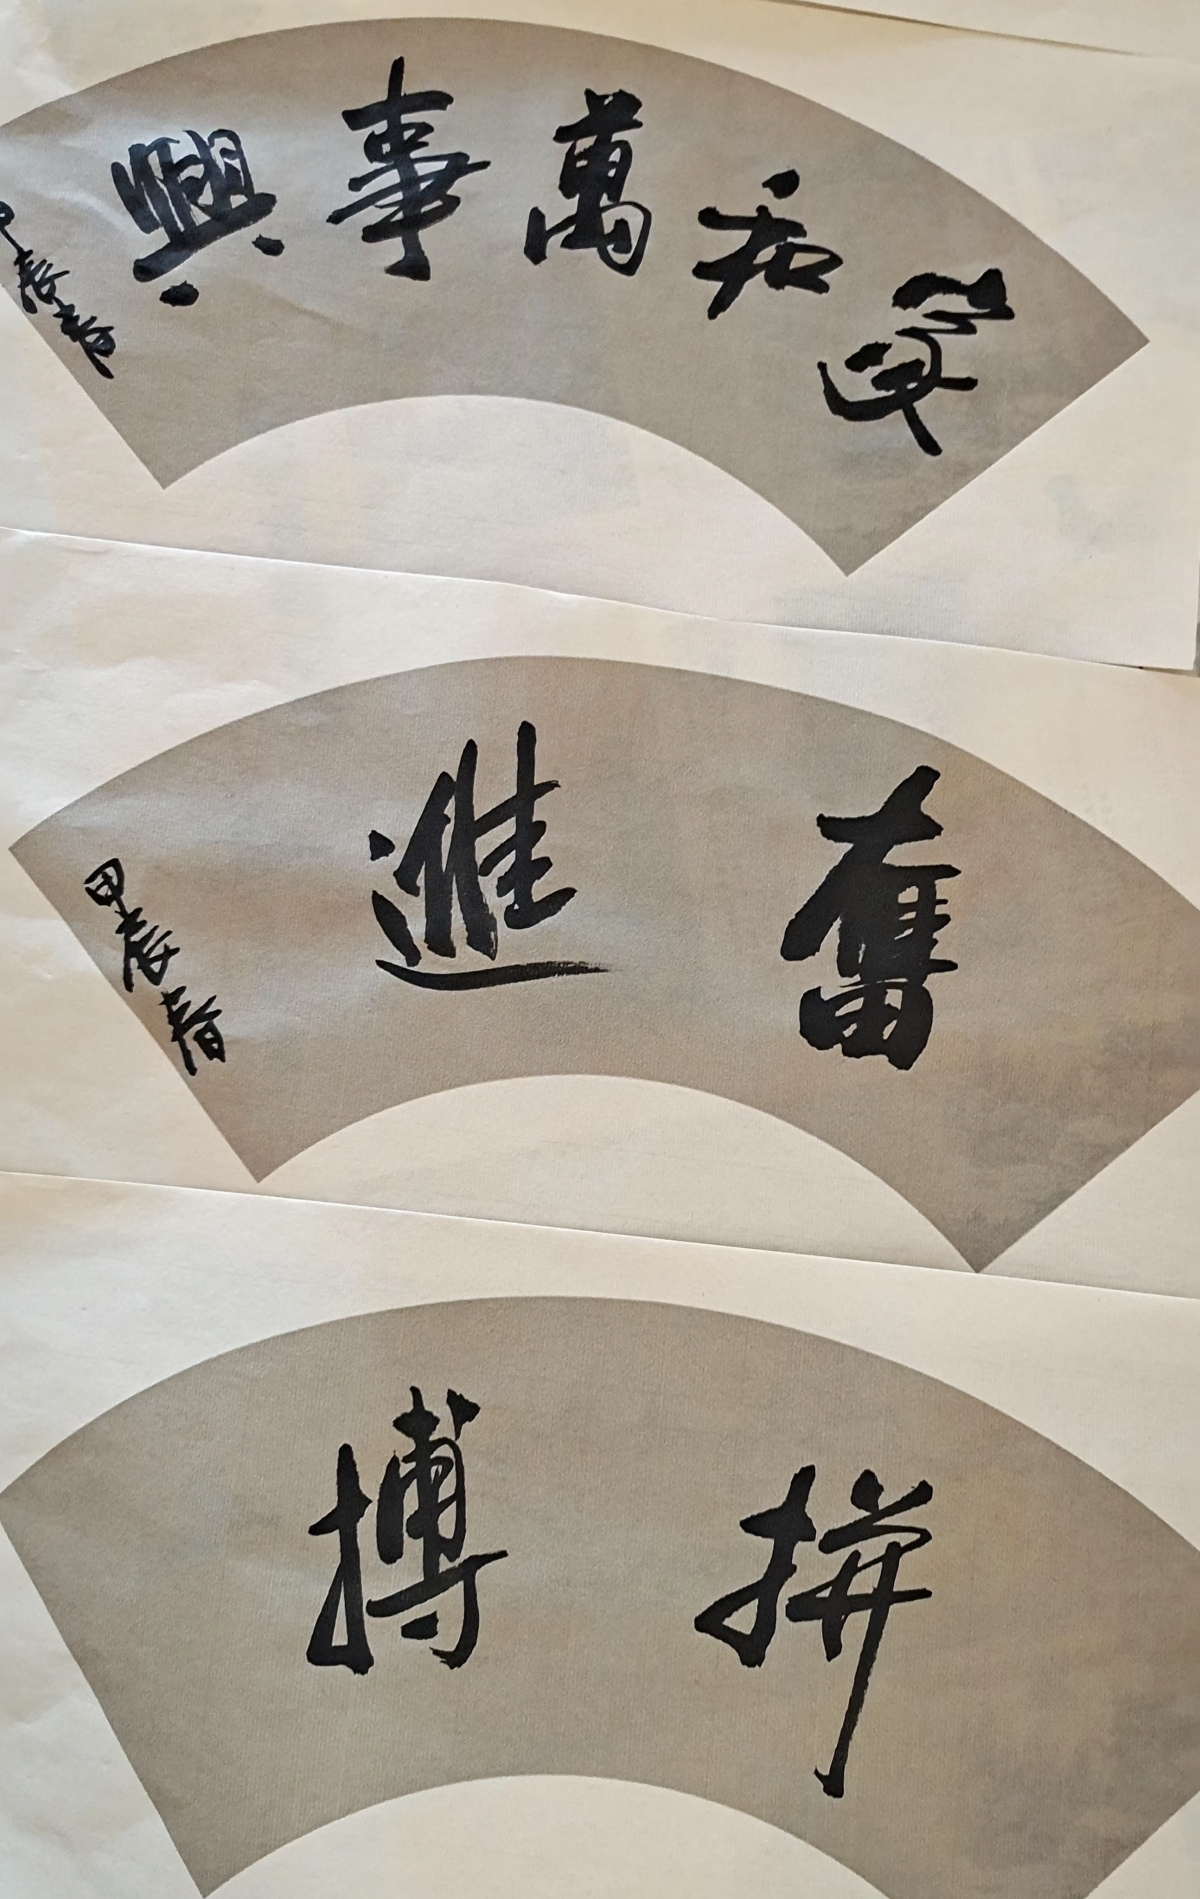 家和萬事興
甲辰春
奮進
甲辰春
拼搏